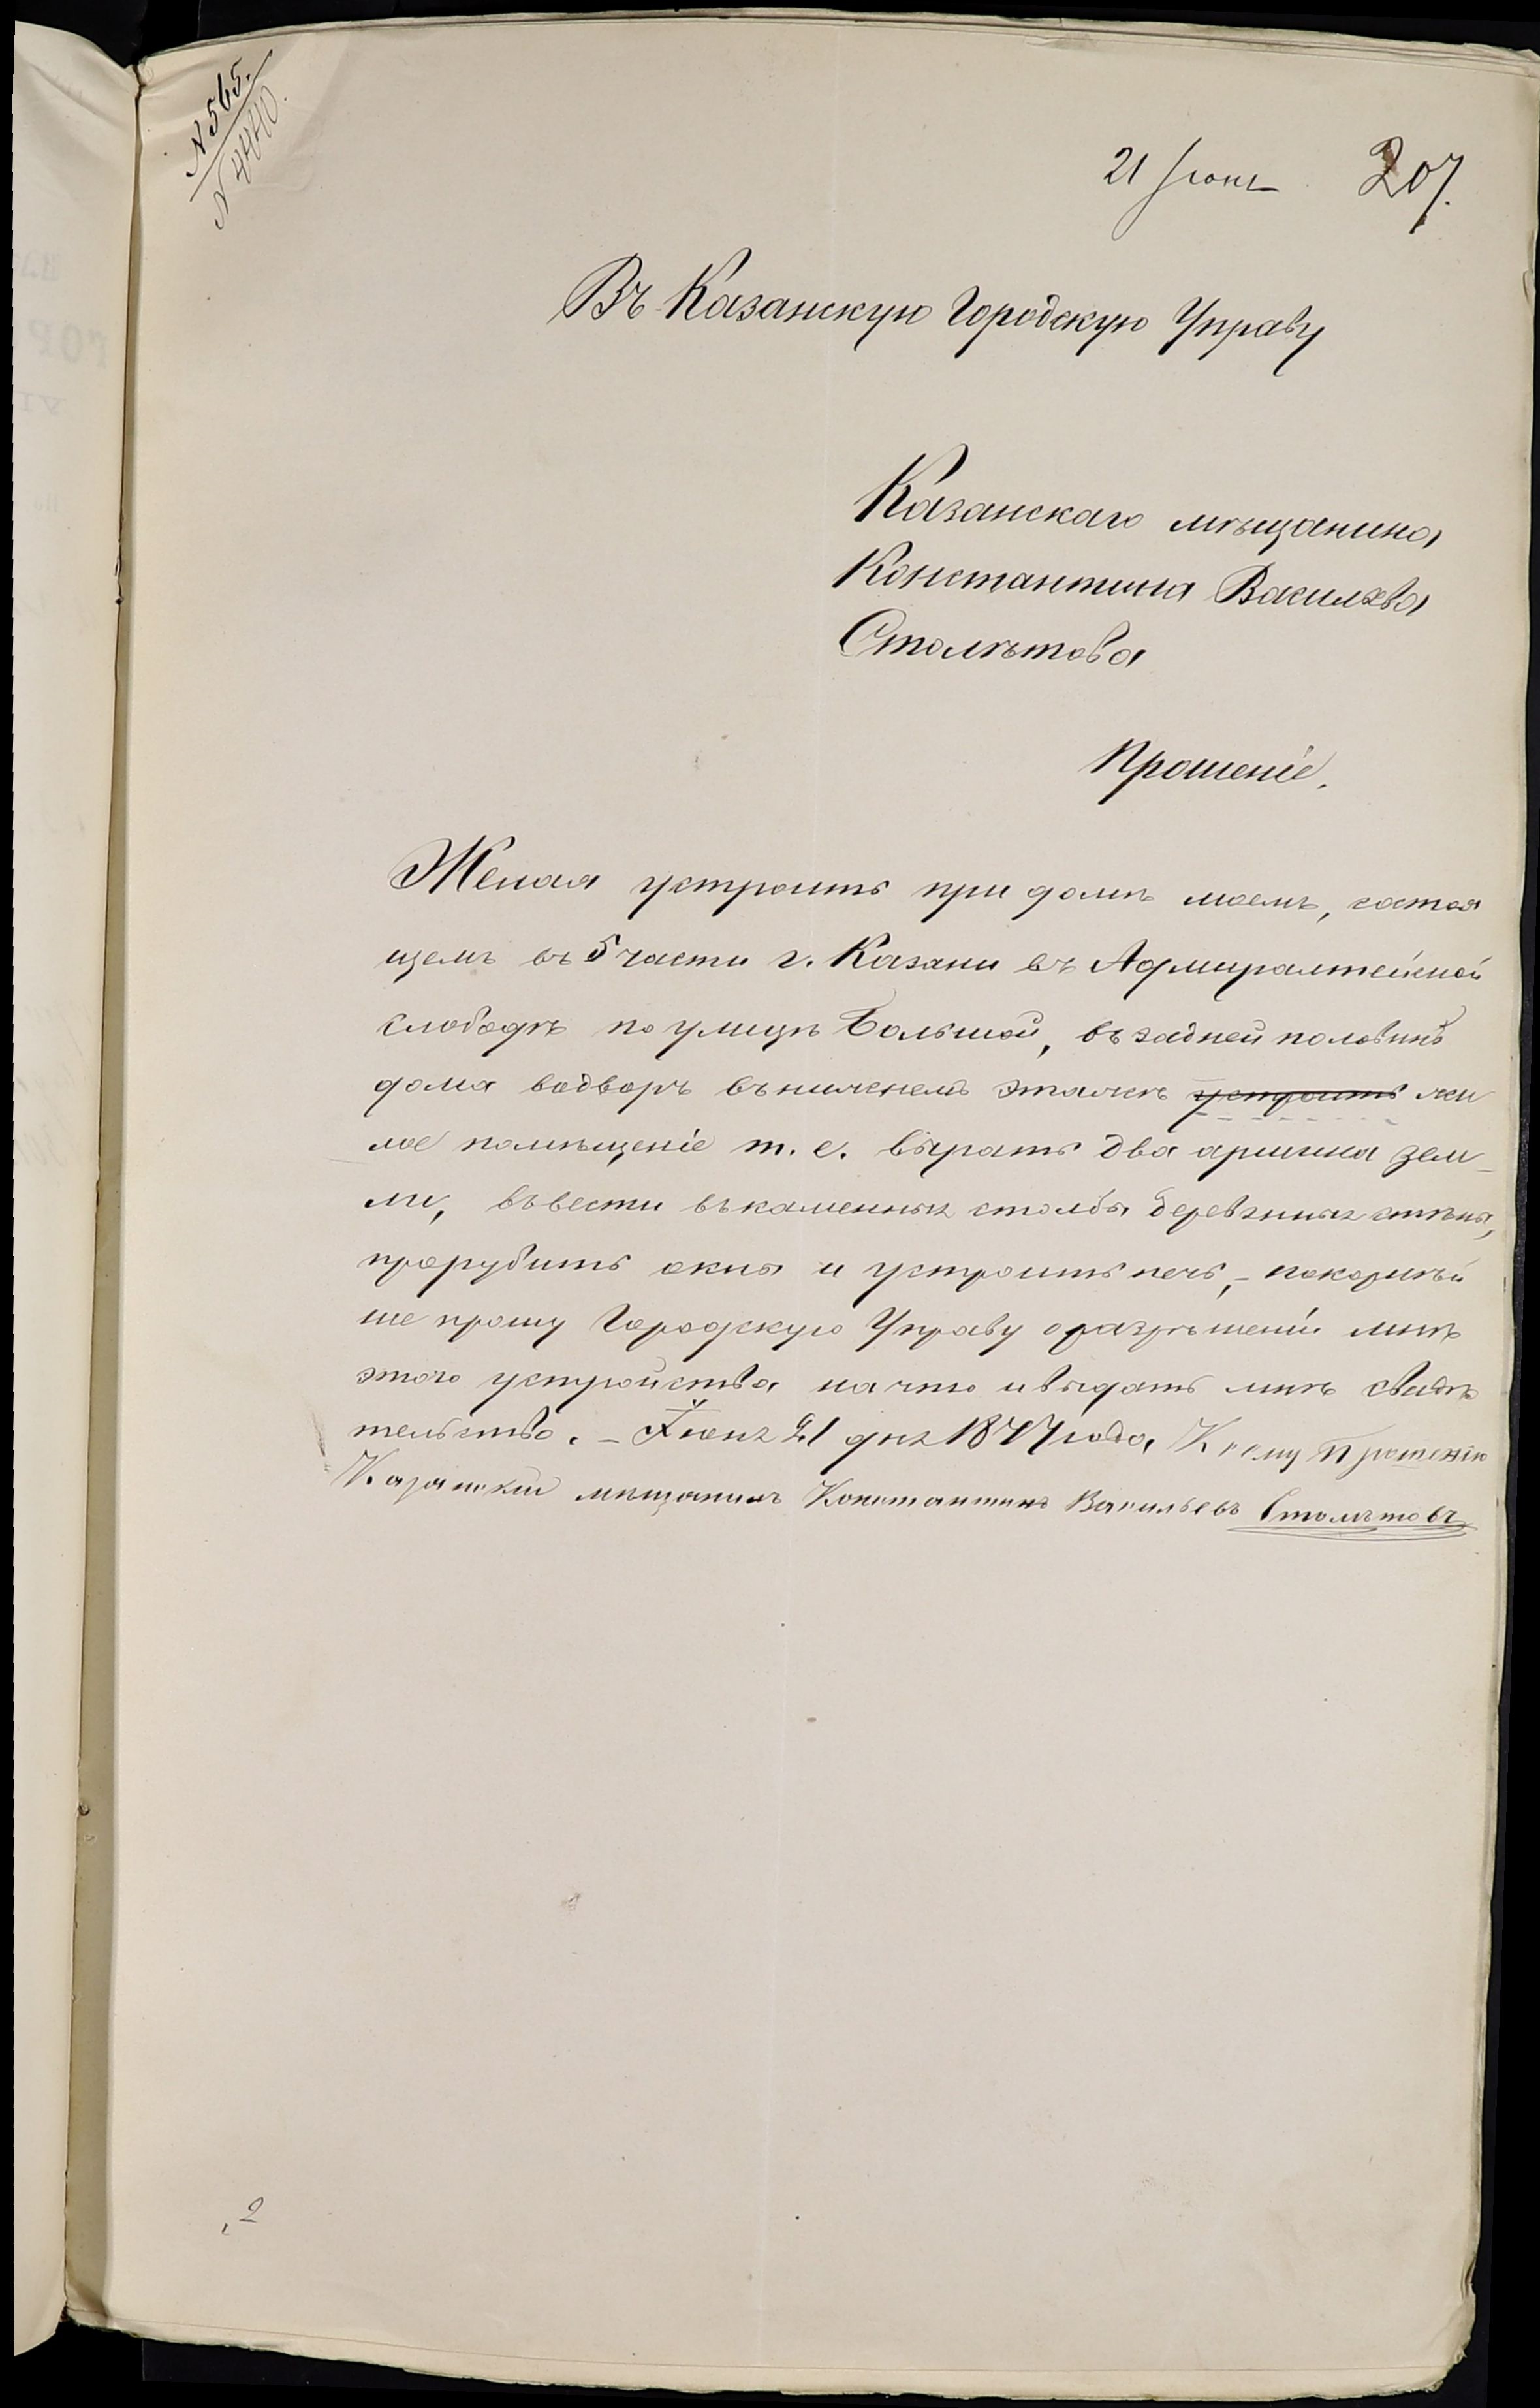 N 565.
N 4440.
21 Іюня 207.
Въ Казанскую Городскую Управу
Казанскаго мѣщанина
Константина Василева
Столѣтова
Прошеніе.
Желая устроить при домѣ моемъ, состоя
щемъ въ 5 части г. Казани въ Адмиралтейской
слободѣ по улицѣ Большой, въ задней половинѣ
дома водворѣ въ нижнемъ этажѣ устроить жи
лое помѣщеніе т. е. вырать два аршина зем-
ли, въвести въ каменныя столбы деревянныя стѣны,
прорубить окны и устроить печь, - покорнѣй
ше прошу Городскую Управу о разрѣшеніи мнѣ
этого устройства на что и выдать мнѣ свидѣ
тельство. - Іюня 21 дня 1877 года, К сему Прошенію
Казанскій мѣщанинъ Константинъ Васильевъ Столѣтовъ
2